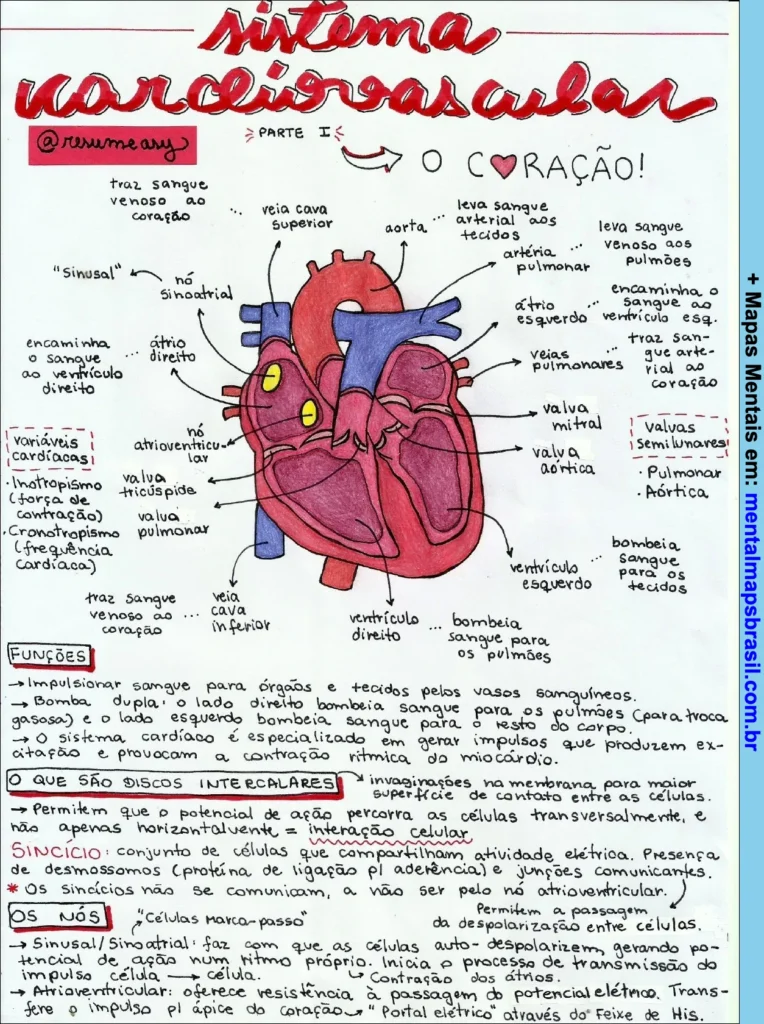 sistema
cardiovascular
@resumeasy
PARTE I
O C♥RAÇÃO!
traz sangue
venoso ao
coração
...
veia cava
superior
aorta
...
leva sangue
arterial aos
tecidos
artéria
pulmonar
...
leva sangue
venoso aos
pulmões
"Sinusal"
nó
sinoatrial
átrio
esquerdo
...
encaminha o
sangue ao
ventrículo esq.
encaminha
o sangue
ao ventrículo
direito
...
átrio
direito
veias
pulmonares
...
traz san-
gue arte-
rial ao
coração
nó
atrioventricu-
lar
valva
mitral
variáveis
cardíacas
• Inotropismo
(força de
contração)
• Cronotropismo
(frequência
cardíaca)
valva
tricúspide
valva
pulmonar
valva
aórtica
valvas
semilunares
• Pulmonar
• Aórtica
traz sangue
venoso ao
coração
...
veia
cava
inferior
ventrículo
direito
...
bombeia
sangue para
os pulmões
ventrículo
esquerdo
...
bombeia
sangue
para os
tecidos
FUNÇÕES
→ Impulsionar sangue para órgãos e tecidos pelos vasos sanguíneos.
→ Bomba dupla: o lado direito bombeia sangue para os pulmões (para troca
gasosa) e o lado esquerdo bombeia sangue para o resto do corpo.
→ O sistema cardíaco é especializado em gerar impulsos que produzem ex-
citação e provocam a contração rítmica do miocárdio.
O QUE SÃO DISCOS INTERCALARES
→ invaginações na membrana para maior
superfície de contato entre as células.
→ Permitem que o potencial de ação percorra as células transversalmente, e
não apenas horizontalmente = interação celular
SINCÍCIO: conjunto de células que compartilham atividade elétrica. Presença
de desmossomos (proteína de ligação p/ aderência) e junções comunicantes.
* Os sincícios não se comunicam, a não ser pelo nó atrioventricular.
Permitem a passagem
da despolarização entre células.
OS NÓS
"Células Marca-passo"
→ Sinusal/Sinoatrial: faz com que as células auto-despolarizem, gerando po-
tencial de ação num ritmo próprio. Inicia o processo de transmissão do
impulso célula → célula.
↳ Contração dos átrios.
→ Atrioventricular: oferece resistência à passagem do potencial elétrico. Trans-
fere o impulso p/ ápice do coração → "Portal elétrico" através do Feixe de His.
+ Mapas Mentais em: mentalmapsbrasil.com.br